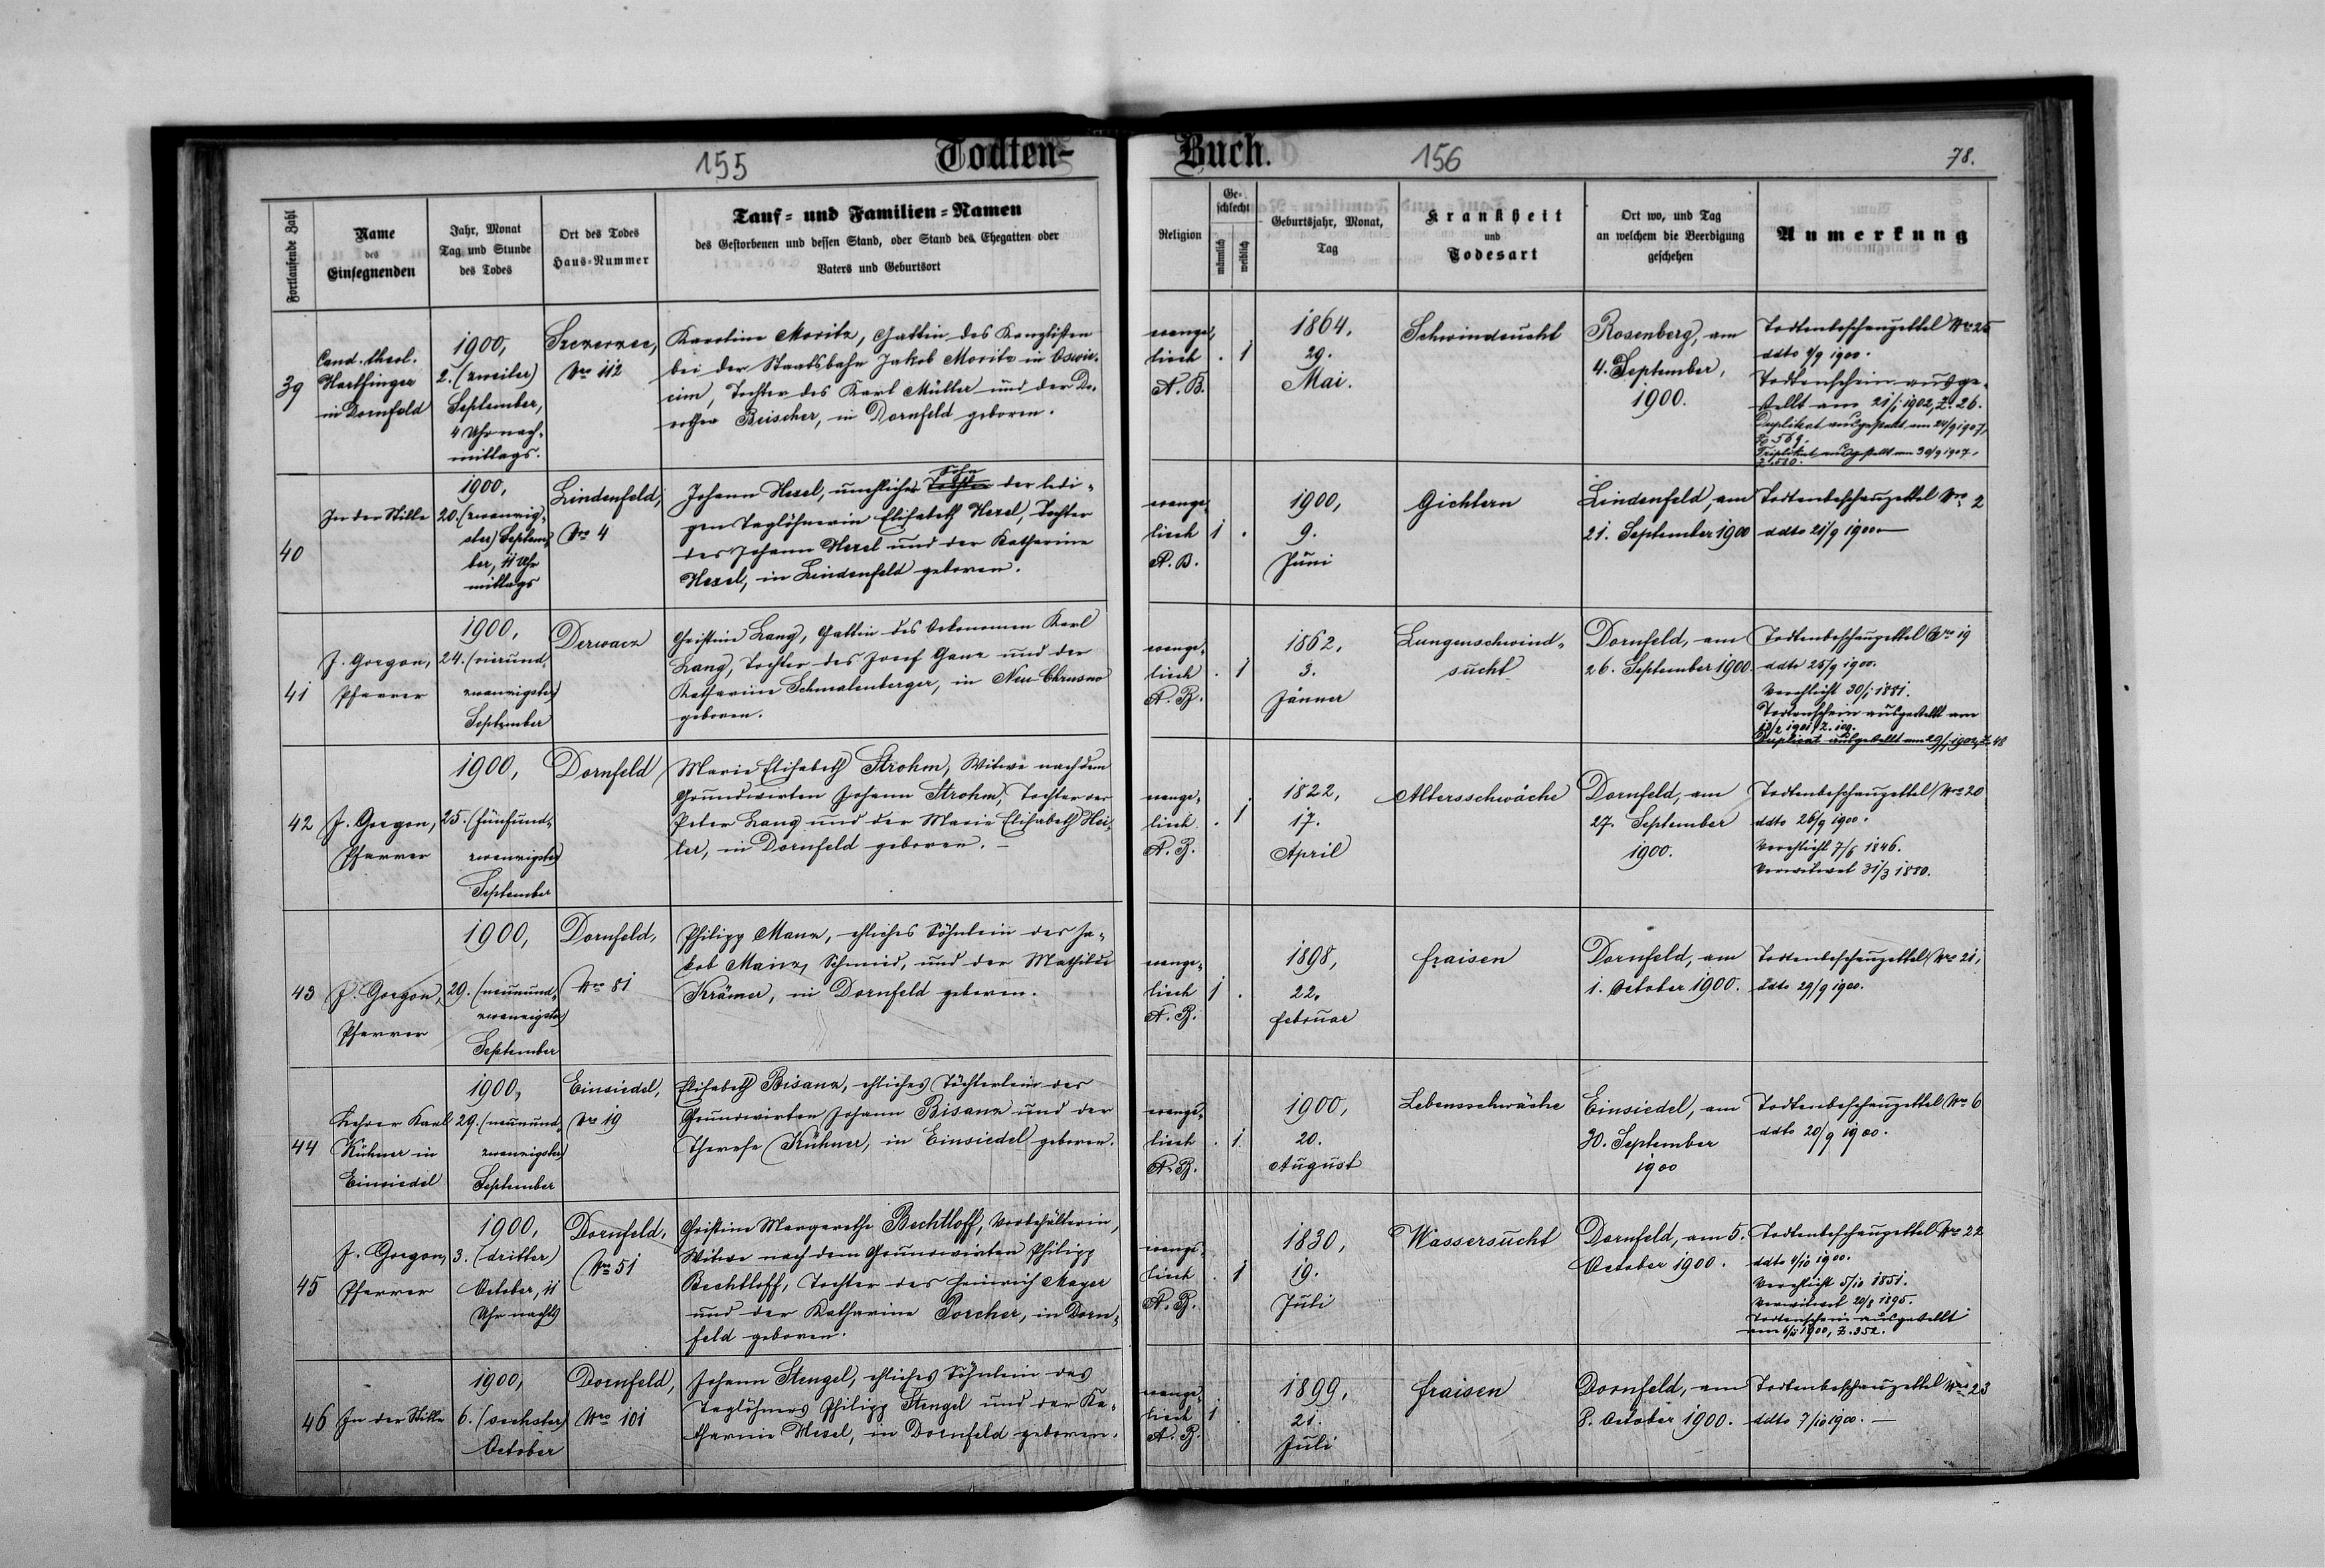 155
Todten-
Buch.
156
78.
Fortlaufende Zahl
Name
des
Einsegnenden
Jahr, Monat
Tag und Stunde
des Todes
Ort des Todes
Haus-Nummer
Tauf- und Familien-Namen
des Gestorbenen und dessen Stand, oder Stand des Ehegatten oder
Vaters und Geburtsort
Religion
Ge-
schlecht
männlich
weiblich
Geburtsjahr, Monat,
Tag
Krankheit
und
Todesart
Ort wo, und Tag
an welchem die Beerdigung
geschehen
Anmerkung
39
Cand. theol.
Hartfinger
in Dornfeld
1900,
2. (zweiter)
September,
4 Uhr nach-
mittags.
Szczerzec,
Nro 112
Karoline Moritz, Gattin des Kanzlisten
bei der Staatsbahn Jakob Moritz in Oswie-
cim, Tochter des Karl Müller und der Do-
rothea Beischer, in Dornfeld geboren.
evange-
lisch
A. B.
. 1
1864,
29.
Mai.
Schwindsucht
Rosenberg, am
4. September,
1900.
Todtenbeschauzettel Nro 25
ddto 2/9 1900.
Todtenschein ausge-
stellt am 21/1 1902, Z. 26.
Duplikat ausgestellt am 24/9 1907,
Z. 569.
Triplikat ausgestellt am 30/9 1907,
Z. 580.
40
In der Stille
1900,
20. (zwanzig-
ster) Septem-
ber, 11 Uhr
mittags
Lindenfeld,
Nro 4
Sohn
Johann Hexel, unehlicher Tochter der ledi-
gen Taglöhnerin Elisabeth Hexel, Tochter
des Johann Hexel und der Katharina
Hexel, in Lindenfeld geboren.
evange-
lisch
A. B.
1 .
1900,
9.
Juni
Gichtern
Lindenfeld, am
21. September 1900
Todtenbeschauzettel Nro 2
ddto 21/9 1900
41
J. Gorgon,
Pfarrer
1900,
24. (vierund-
zwanzigster)
September
Derwacz
Christine Lang, Gattin des Oekonomen Karl
Lang, Tochter des Josef Ganz und der
Katharina Schmalenberger, in Neu Chrusno
geboren.
evange-
lisch
A. B.
. 1
1862,
3.
Jänner
Lungenschwind-
sucht
Dornfeld, am
26. September 1900.
Todtenbeschauzettel Nro 19
ddto 25/9 1900.
Verehlicht 30/1 1881.
Todtenschein ausgestellt am
13/2 1901, Z. 100.
Duplicat ausgestellt am 29/1 1902, Z. 48
42
J. Gorgon,
Pfarrer
1900,
25. (fünfund-
zwanzigster)
September
Dornfeld
Marie Elisabeth Strohm, Witwe nach dem
Grundwirten Johann Strohm, Tochter des
Peter Lang und der Marie Elisabeth Hei-
ler, in Dornfeld geboren. –
evange-
lisch
A. B.
. 1
1822,
17.
April
Altersschwäche
Dornfeld, am
27. September
1900.
Todtenbeschauzettel Nro 20
ddto 26/9 1900.
Verehlicht 7/6 1846.
Verwitwet 31/3 1880.
43
J. Gorgon,
Pfarrer
1900,
29. (neunund-
zwanzigster)
September
Dornfeld,
Nro 81
Philipp Manz, ehliches Söhnlein des Ja-
kob Manz, Schmied, und der Mathilde
Krämer, in Dornfeld geboren.
evange-
lisch
A. B.
1 .
1898,
22.
Februar
Fraisen
Dornfeld, am
1. October 1900.
Todtenbeschauzettel Nro 21,
ddto 29/9 1900.
44
Lehrer Karl
Kühner in
Einsiedel
1900,
29. (neunund-
zwanzigster)
September
Einsiedel,
Nro 19
Elisabeth Bisanz, ehliches Töchterlein des
Grundwirten Johann Bisanz und der
Therese Kühner, in Einsiedel geboren.
evange-
lisch
A. B.
. 1
1900,
20.
August
Lebensschwäche
Einsiedel, am
30. September
1900
Todtenbeschauzettel Nro 6
ddto 20/9 1900.
45
J. Gorgon,
Pfarrer
1900,
3. (dritter)
October, 11
Uhr nachts
Dornfeld,
Nro 51
Christine Margarethe Bechtloff, Vorbehälterin,
Witwe nach dem Grundwirten Philipp
Bechtloff, Tochter des Heinrich Mayer
und der Katharina Porcher, in Dorn-
feld geboren.
evange-
lisch
A. B.
. 1
1830,
19.
Juli
Wassersucht
Dornfeld, am 5.
October 1900.
Todtenbeschauzettel Nro 22
ddto 4/10 1900.
Verehlicht 5/10 1851.
Verwitwet 20/8 1895.
Todtenschein ausgestellt
am 6/11 1900, Z. 352.
46
In der Stille
1900,
6. (sechster)
October
Dornfeld,
Nro 101
Johann Stengel, ehliches Söhnlein des
Taglöhners Philipp Stengel und der Ka-
tharina Hexel, in Dornfeld geboren.
evange-
lisch
A. B.
1 .
1899,
21.
Juli
Fraisen
Dornfeld, am
8. October 1900.
Todtenbeschauzettel Nro 23
ddto 7/10 1900. –